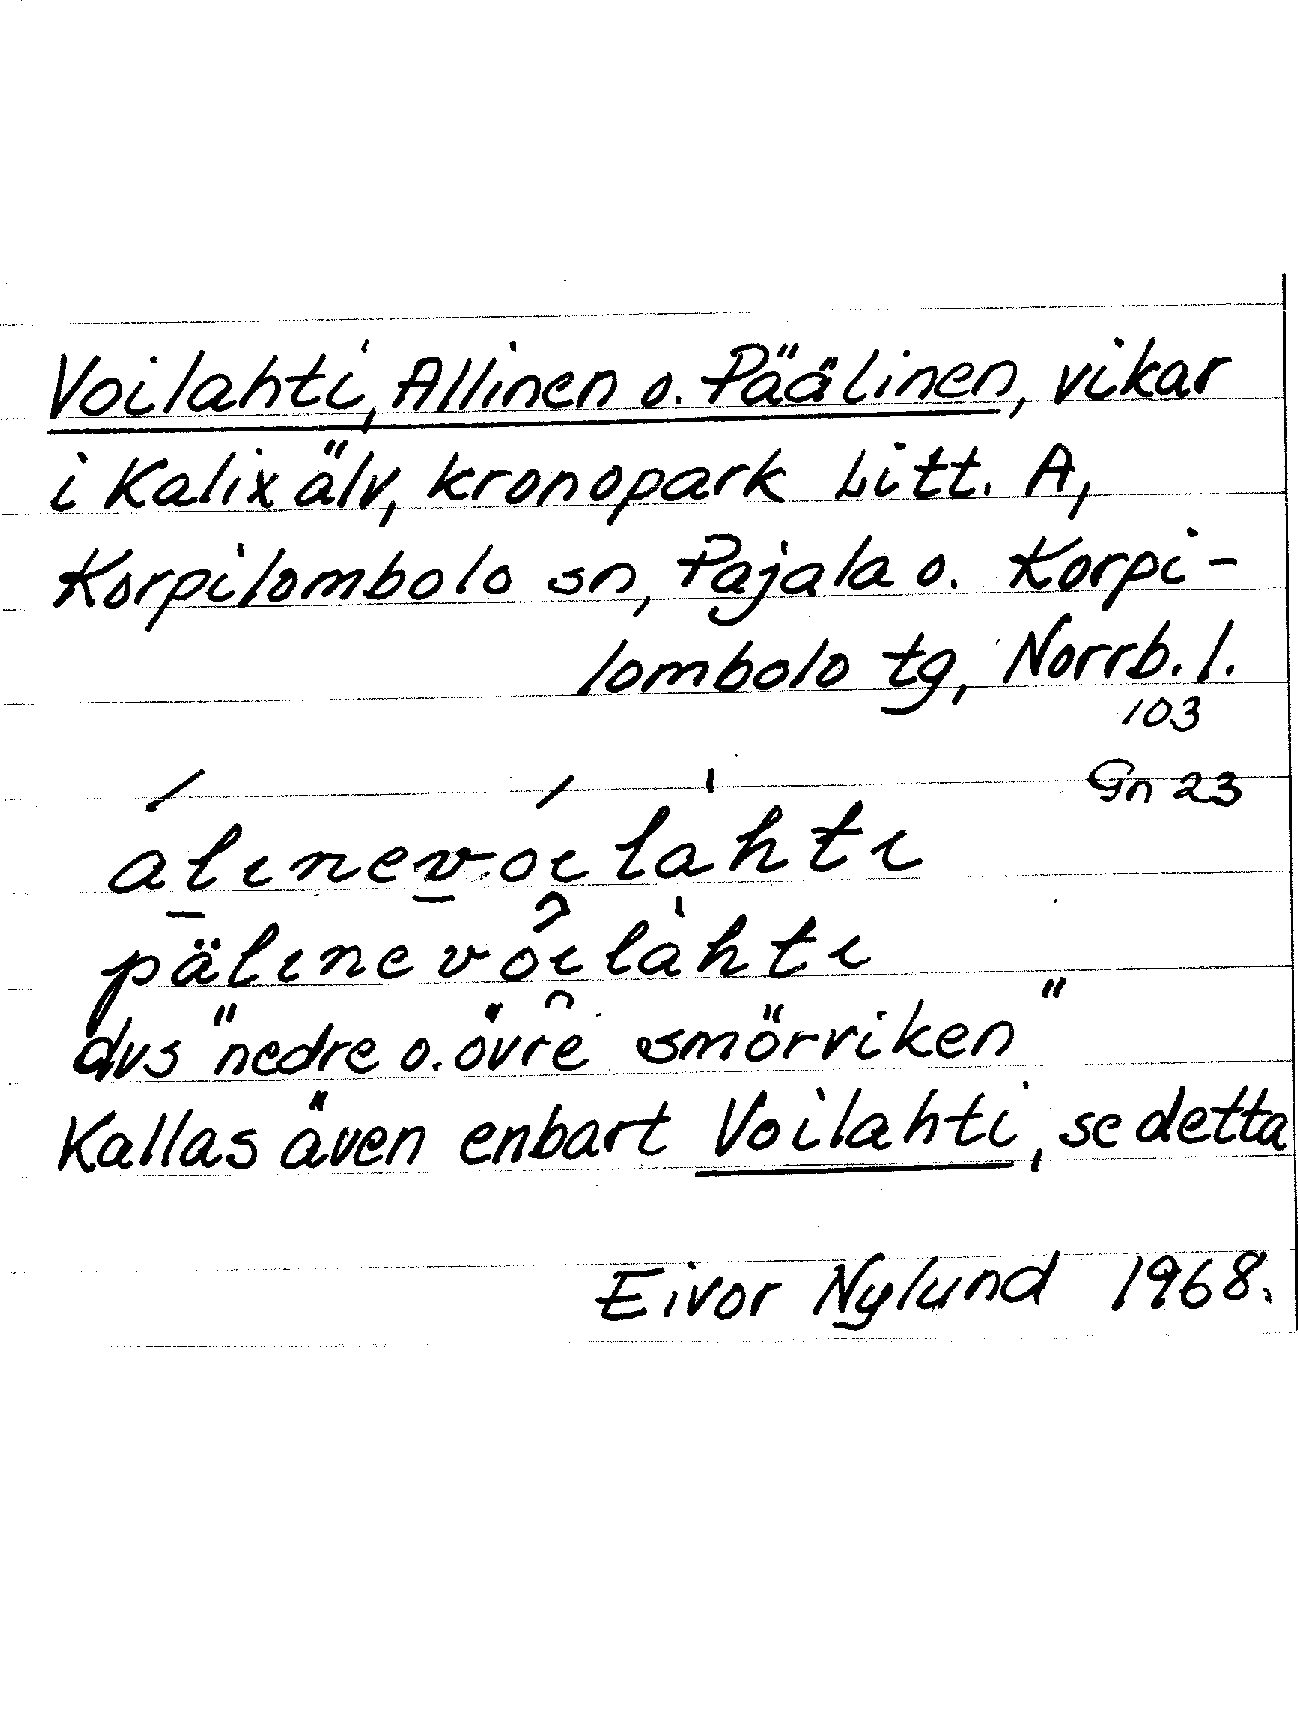 Voilahti, Allinen o. Päälinen, vikar
i Kalix älv, kronopark Litt. A,
Korpilombolo sn, Pajala o. Korpi-
lombolo tg, Norrb. l.
103
Gn 23
álınevóılàhtı
pälınevôılàhtı
dvs "nedre o. övre smörviken"
Kallas även enbart Voilahti, se detta
Eivor Nylund 1968.